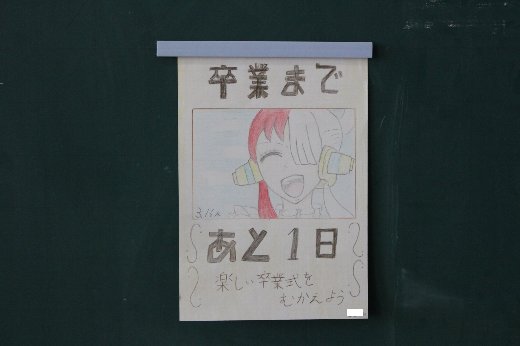 卒業まで
あと1日
楽しい卒業式を
むかえよう